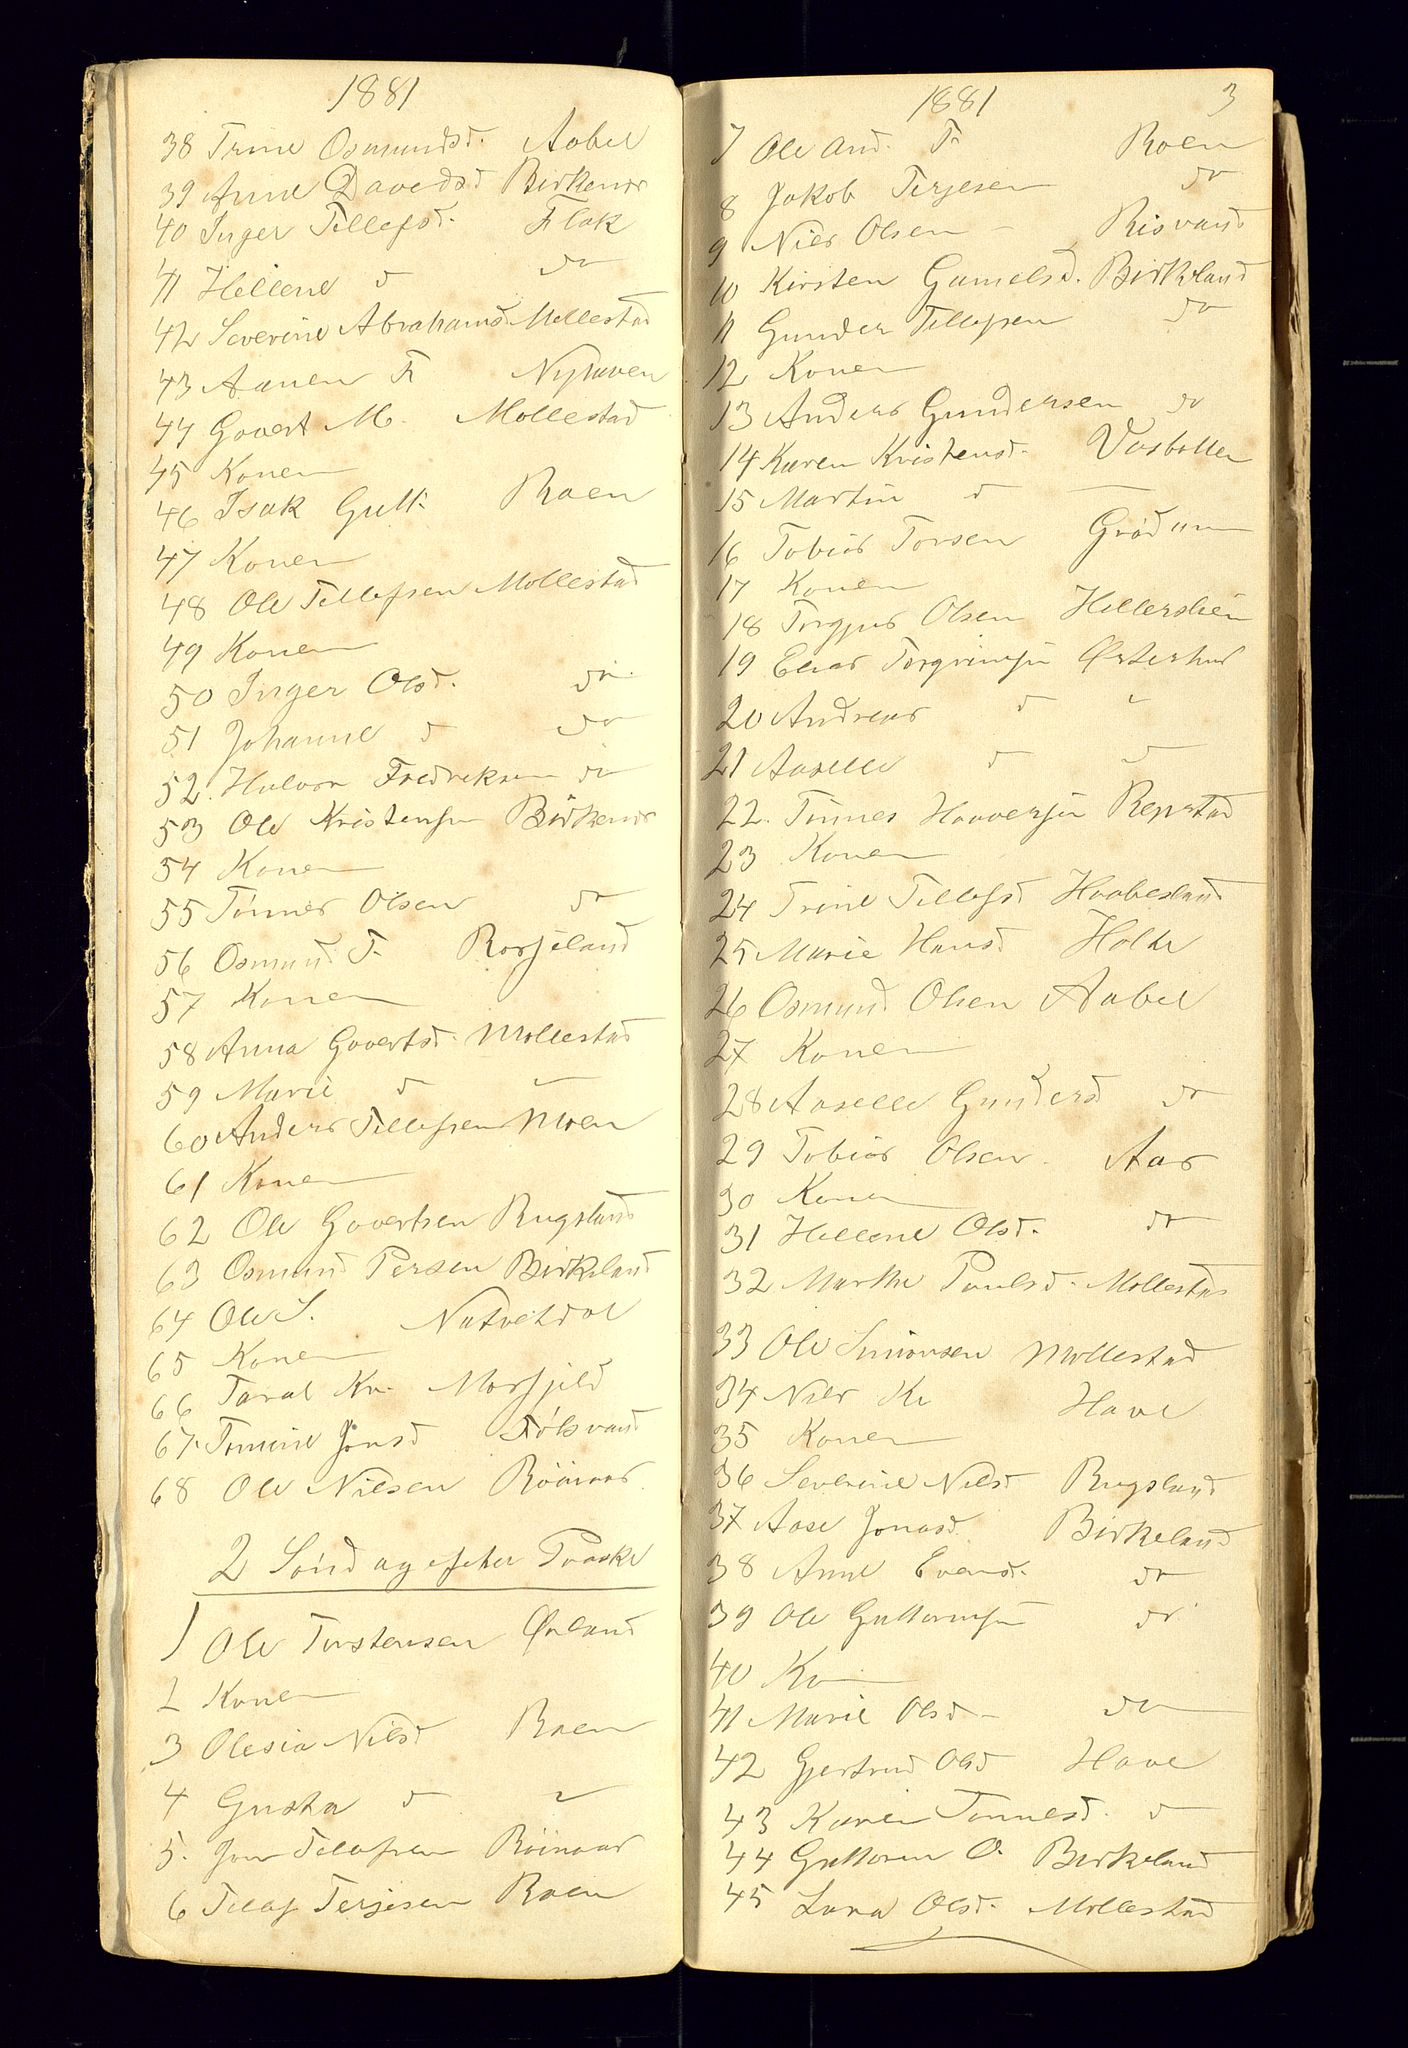 1881
38 Trine Osmundsd. Aabel
39 Anne Davedsd Birkenes
40 Inger Tellefsd. Flak
41 Hellene d do
42 Severine Abrahamsd. Mollestad
43 Aanen F
44 Govert M. Mollestad
45 Konen
46 Isak Gutt. Roen
47 Konen
48 Ole Tellefsen Mollestad
49 Konen
50 Inger Olsd. do
51 Johanne d do
52 Halvor Fredreksen do
53 Ole Kristensen Birkenes
54 Konen
55 Tønnes Olsen do
56 Osmund T.
57 Konen
58 Anna Govertsd. Mollestad
59 Marie d
60 Anders Tellefsen Moen
61 Konen
62 Ole Govertsen Rugsland
63 Osmund Persen Birkeland
64 Ole S. Natvetdal
65 Konen
66 Taral Kr. Morfjeld
67. Tomine Jonsd
68 Ole Nilsen Röinaas
2 Söndag efter Paaske
1 Ole Torstensen Øvland
2 Konen
3 Olesia Nilsd Roen
4 Gusta d
5. Jon Tellefsen Röinaas
6 Tellef Terjesen Roen
1881 3
7 Ole And. F. Roen
8 Jakob Terjesen do
9 Niels Olsen Risvand
10 Kirsten Gamelsd. Birkeland
11 Gunder Tellefsen do
12 Konen
13 Anders Gundersen do
14 Karen Kristensd. Vasbotten
15 Martin d
16 Tobias Torsen Grødum
17 Konen
18 Torgjus Olsen Hellerslien
19 Elias Torgrimsen Østerhus
20 Andreas d
21 Aaselle d
22. Tønnes Haaversen Repstad
23 Konen
24 Trine Tellefsd Haabesland
25 Marie Hansd Holte
26 Osmund Olsen Aabel
27 Konen
28 Aaselle Gundersd do
29 Tobias Olsen Aas
30 Konen
31 Hellene Olsd. do
32 Marthe Paulsd. Mollestad
33 Ole Simonsen Mollestad
34 Niels Kr Have
35 Konen
36 Severine Nilsd Rugsland
37 Aase Jonasd. Birkeland
38 Anne Evensd. do
39 Ole Guttormsen do
40 Kon
41 Marie Olsd do
42 Gjertrud Olsd Have
43 Karen Tønnesd. d
44 Guttorm O. Birkeland
45 Lava Olsd. Mollestad